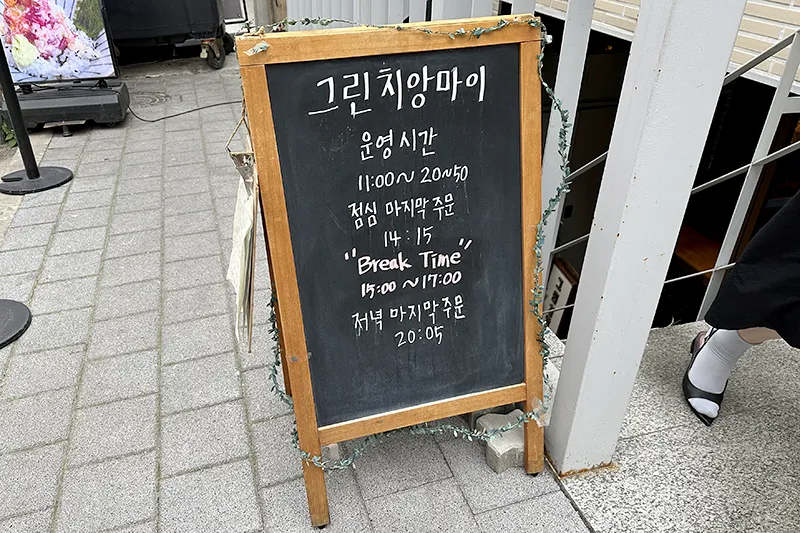 그린치앙마이
운영시간
11:00~20~50
점심 마지막 주문
14:15
"Break Time"
15:00~17:00
저녁 마지막 주문
20:05